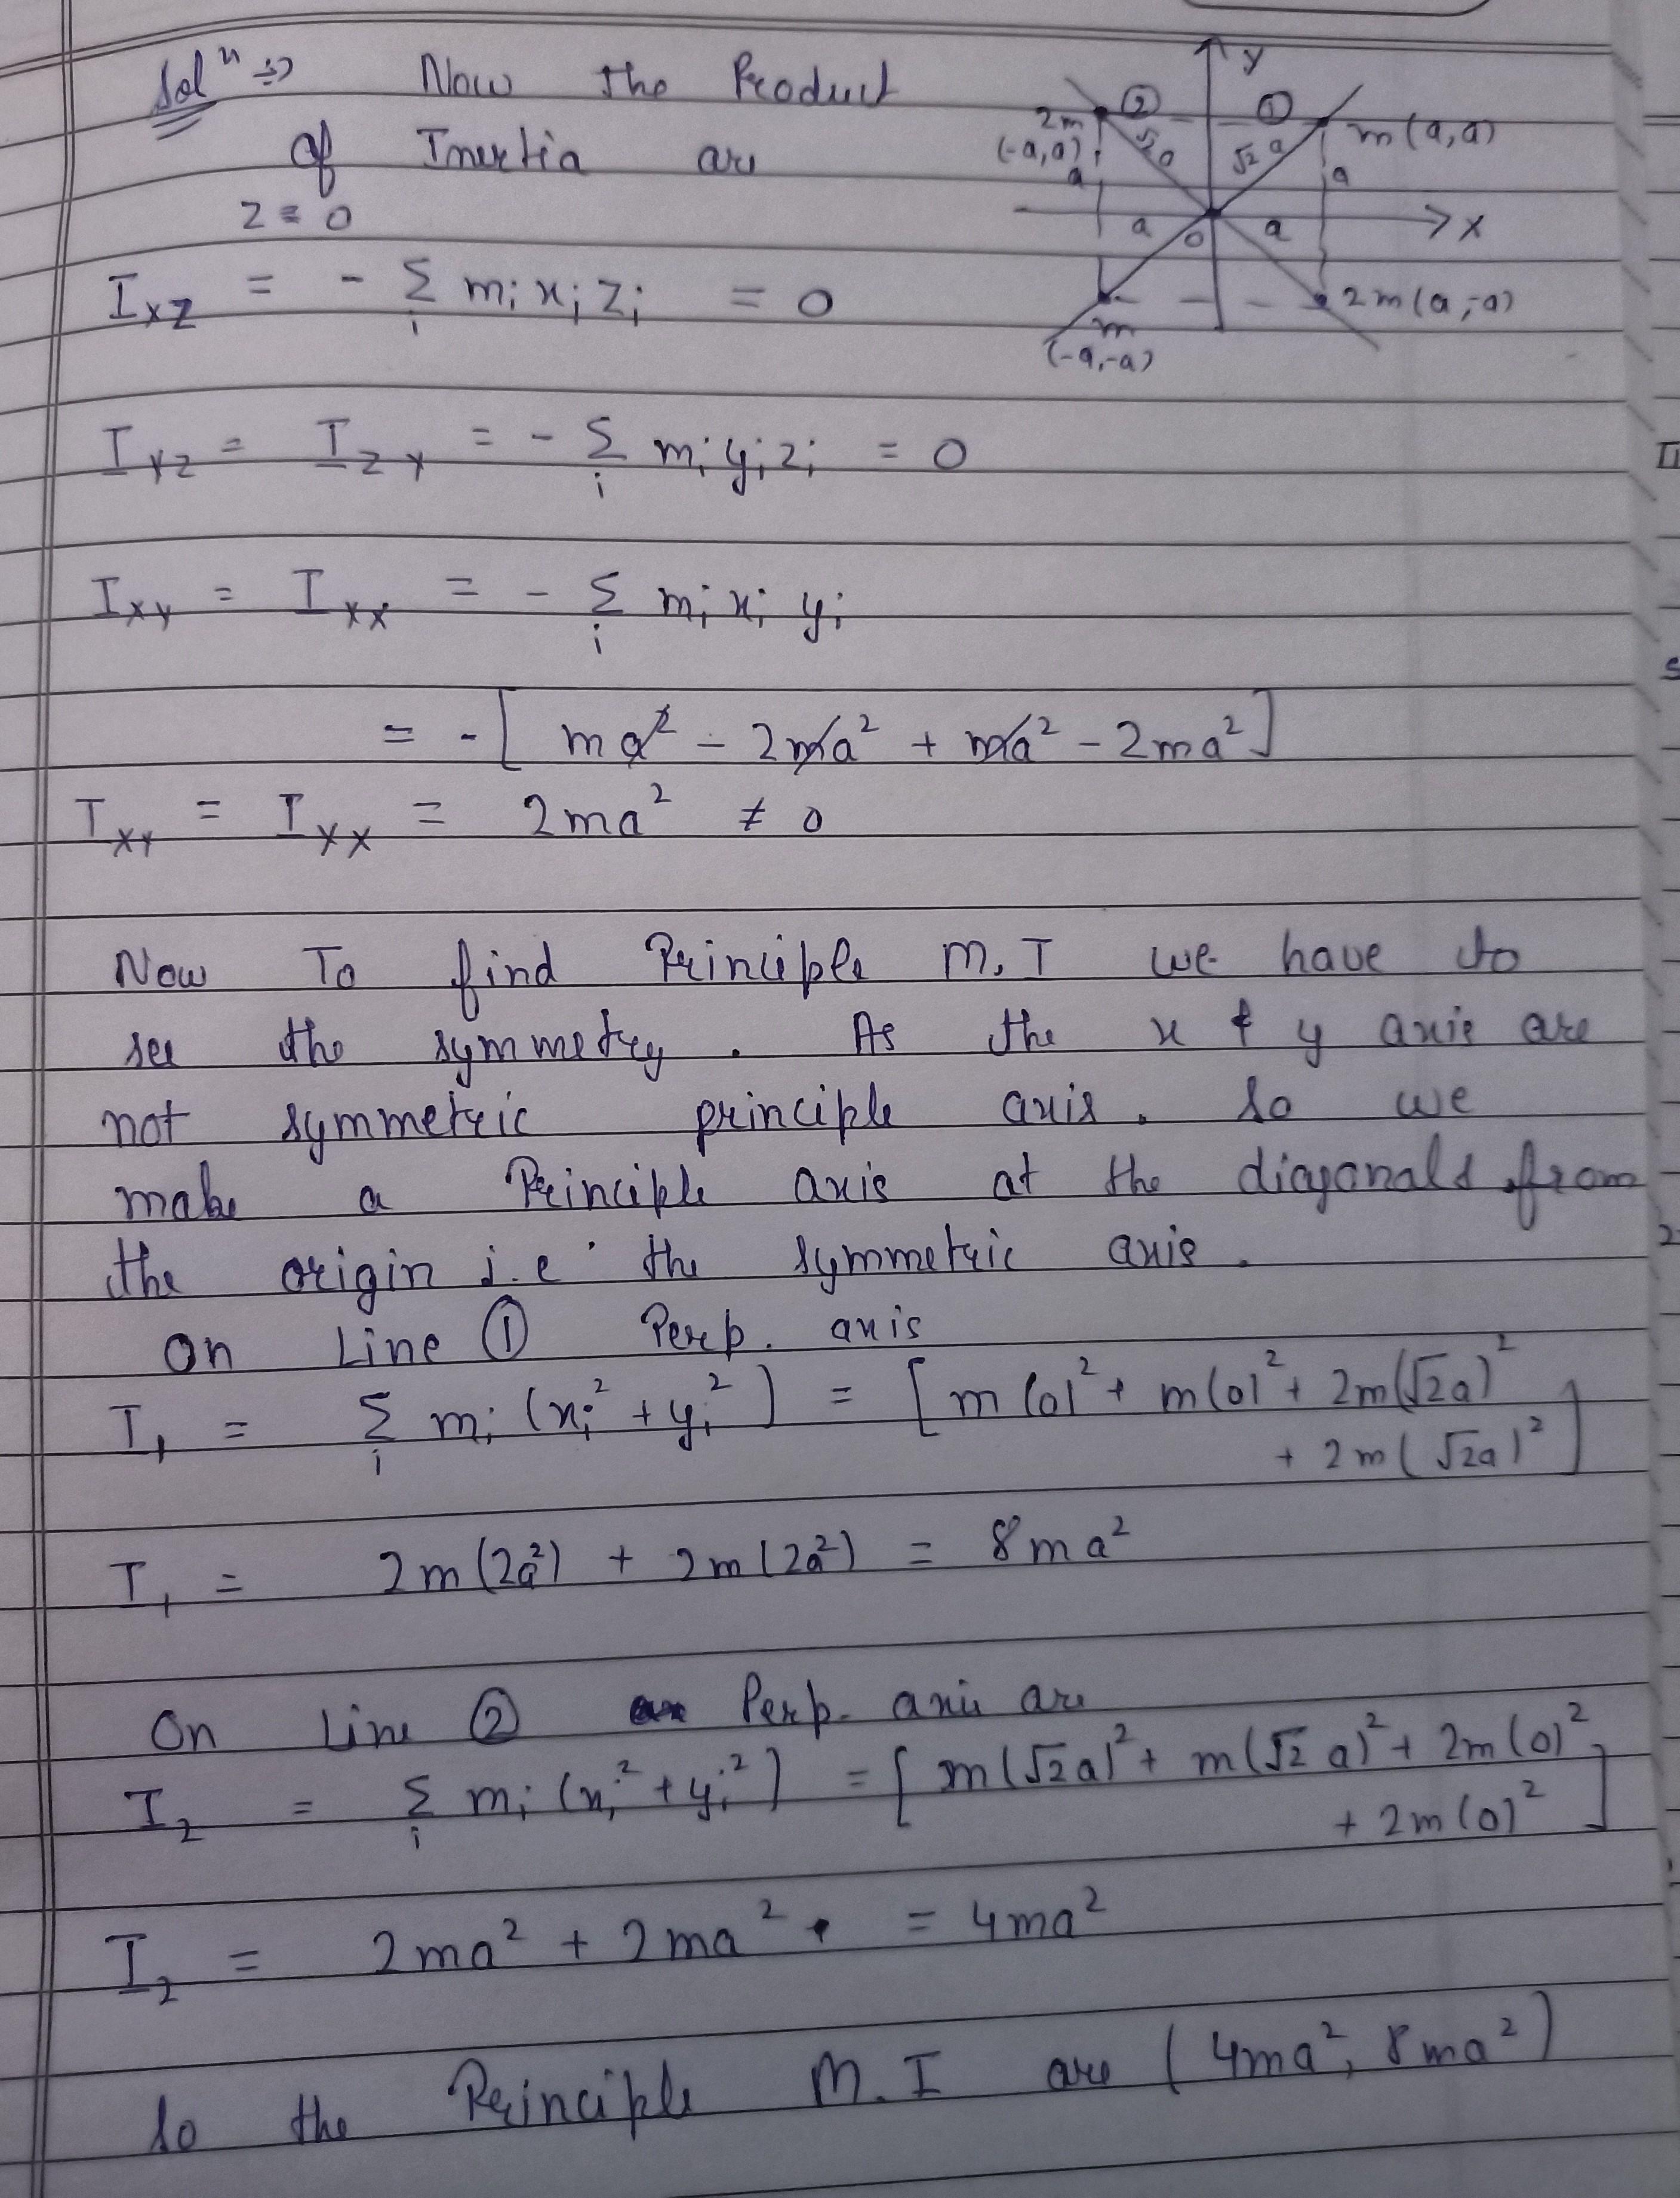 Solⁿ ⇒ Now the Product
of Inertia are
z = 0
y
② ①
2m
(-a,a)
m(a,a)
√2 a
a
a
a
0
a
x
2m(a,-a)
m
(-a,-a)
I_xz = - Σ_i m_i x_i z_i = 0
I_yz = I_zy = - Σ_i m_i y_i z_i = 0
I_xy = I_yx = - Σ_i m_i x_i y_i
= - [ ma² - 2ma² + ma² - 2ma² ]
I_xy = I_yx = 2ma² ≠ 0
Now To find Principle M.I we have to
see the symmetry. As the x & y axis are
not symmetric principle axis. So we
make a Principle axis at the diagonals from
the origin i.e the symmetric axis.
On Line ① Perp. axis
I₁ = Σ_i m_i (x_i² + y_i²) = [ m(0)² + m(0)² + 2m(√2a)²
+ 2m(√2a)² ]
I₁ = 2m(2a²) + 2m(2a²) = 8ma²
On Line ② Perp. axis are
I₂ = Σ_i m_i (x_i² + y_i²) = [ m(√2a)² + m(√2 a)² + 2m(0)²
+ 2m(0)² ]
I₂ = 2ma² + 2ma² = 4ma²
So the Principle M.I are (4ma², 8ma²)